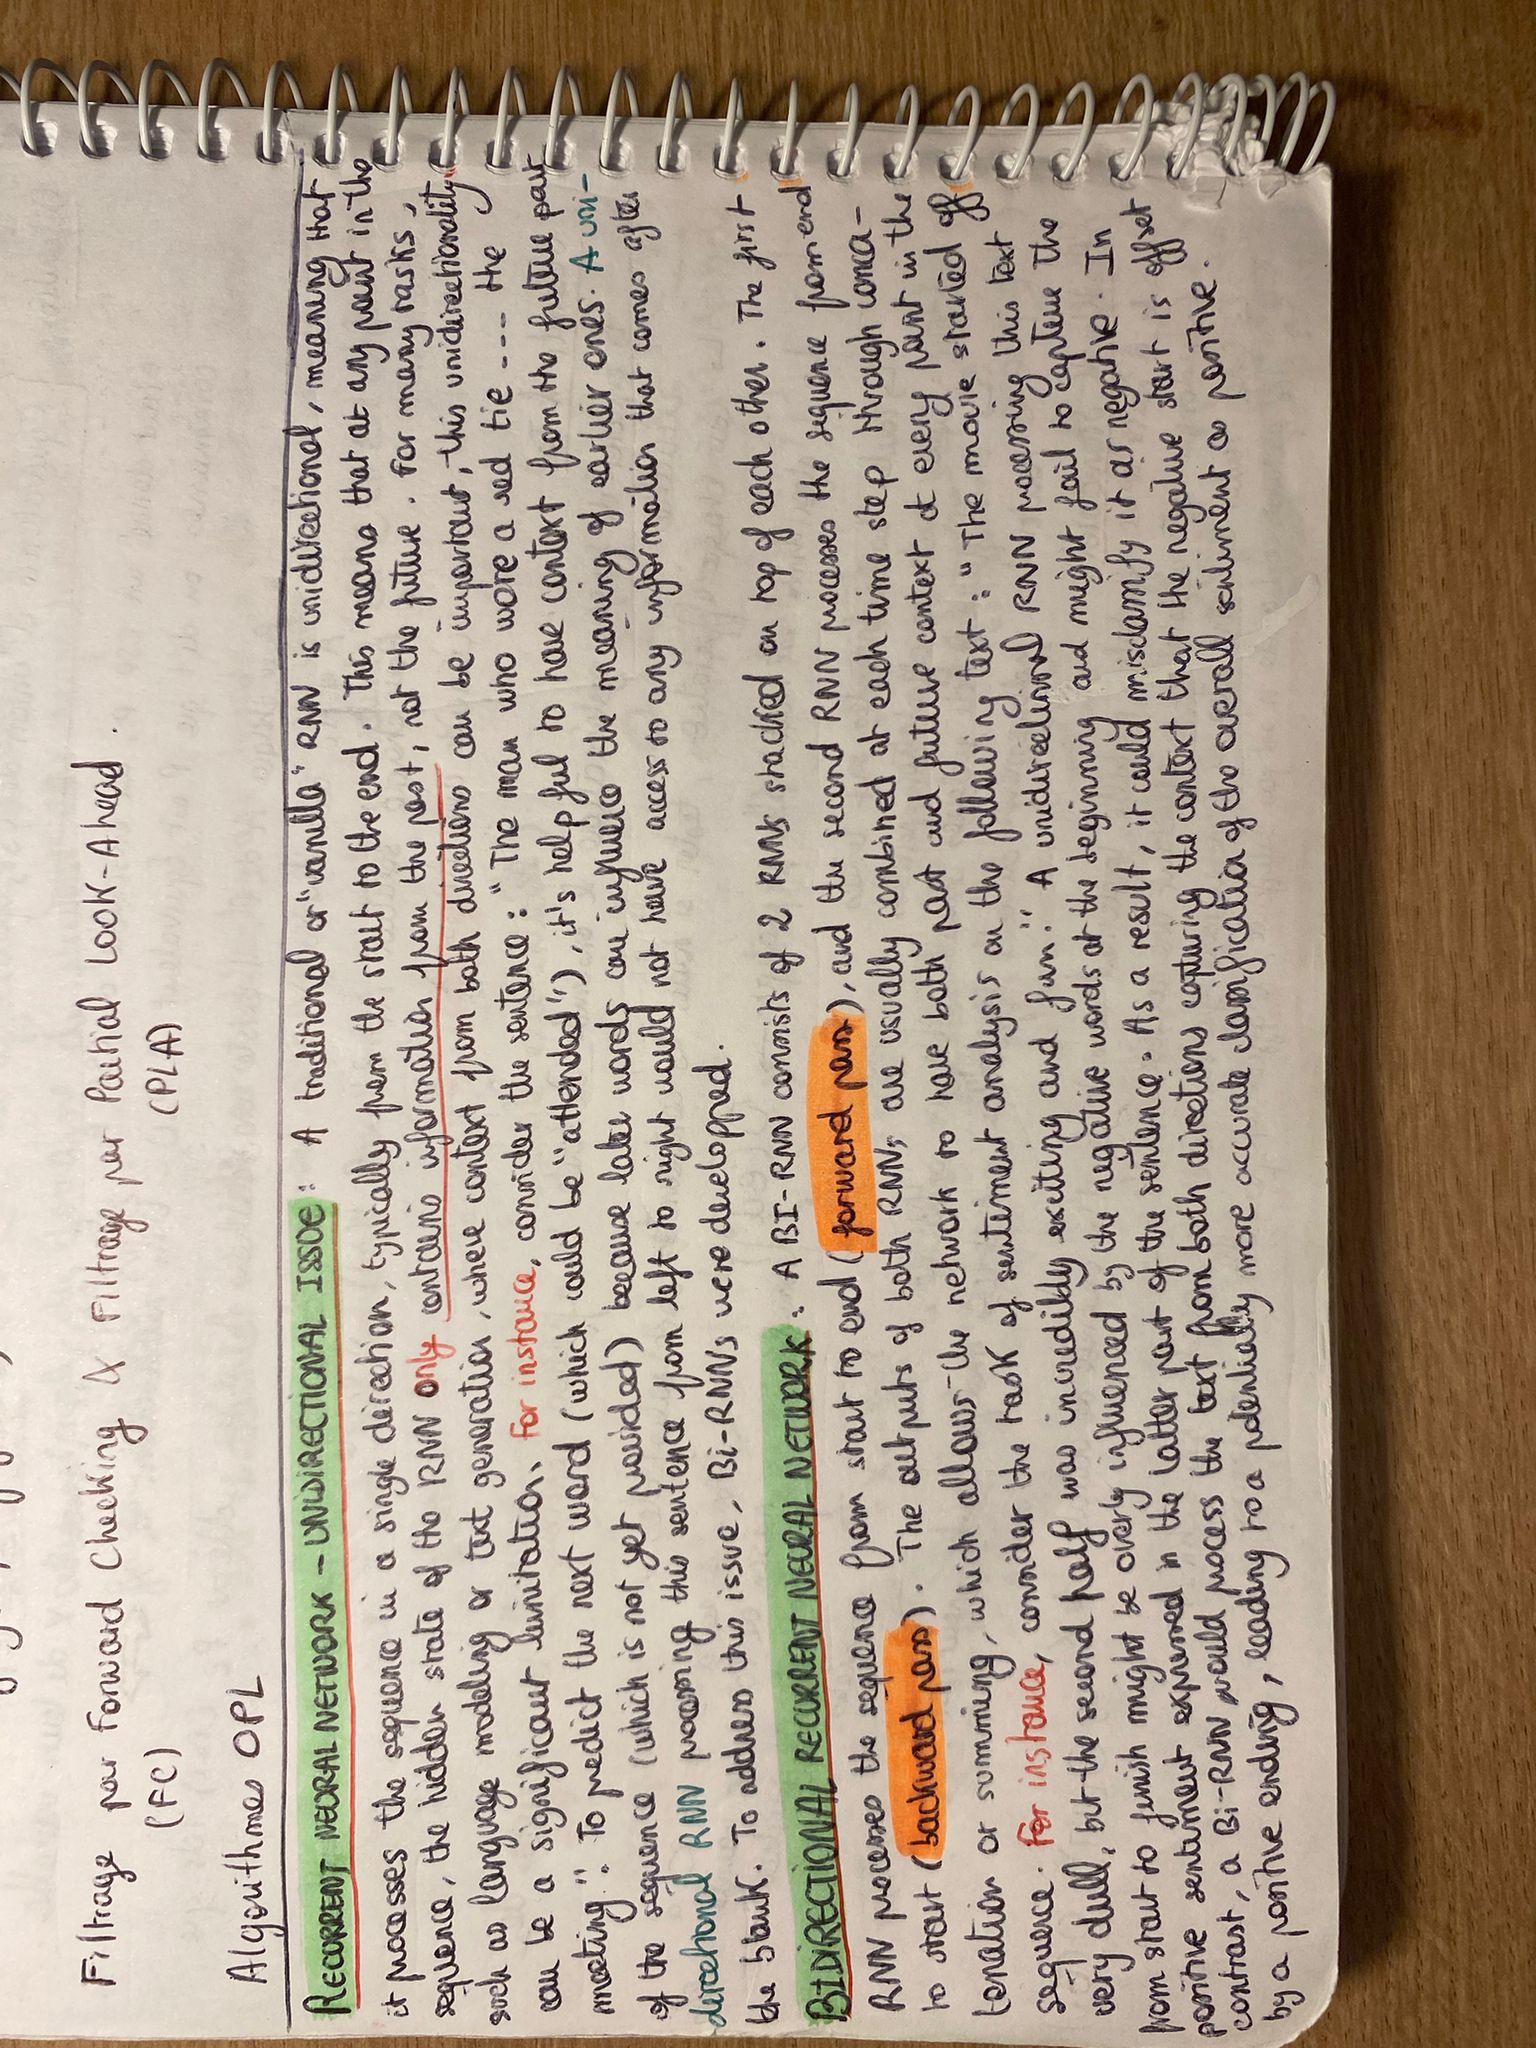 Filtrage par Forward Checking & Filtrage par Partial Look-Ahead.
(FC) (PLA)
Algorithmes OPL
RECURRENT NEURAL NETWORK - UNIDIRECTIONAL ISSUE : A traditional or "vanilla" RNN is unidirectional, meaning that
it processes the sequence in a single direction, typically from the start to the end. This means that at any point in the
sequence, the hidden state of the RNN only contains information from the past, not the future. For many tasks,
such as language modeling or text generation, where context from both directions can be important, this unidirectionality
can be a significant limitation. For instance, consider the sentence : "The man who wore a red tie ---- the
meeting". To predict the next word (which could be "attended"), it's helpful to have context from the future part
of the sequence (which is not yet provided) because later words can influence the meaning of earlier ones. A uni-
directional RNN processing this sentence from left to right would not have access to any information that comes after
the blank. To address this issue, Bi-RNNs were developped.
BIDIRECTIONAL RECURRENT NEURAL NETWORK : A BI-RNN consists of 2 RNNs stacked on top of each other. The first
RNN processes the sequence from start to end (forward pass), and the second RNN processes the sequence from end
to start (backward pass). The outputs of both RNNs are usually combined at each time step through conca-
tenation or summing, which allows the network to have both past and future context at every point in the
sequence. For instance, consider the task of sentiment analysis on the following text : "The movie started off
very dull, but the second half was incredibly exciting and fun." A unidirectional RNN processing this text
from start to finish might be overly influenced by the negative words at the beginning and might fail to capture the
positive sentiment expressed in the latter part of the sentence. As a result, it could misclassify it as negative. In
contrast, a Bi-RNN would process the text from both directions capturing the context that the negative start is offset
by a positive ending, leading to a potentially more accurate classification of the overall sentiment as positive.